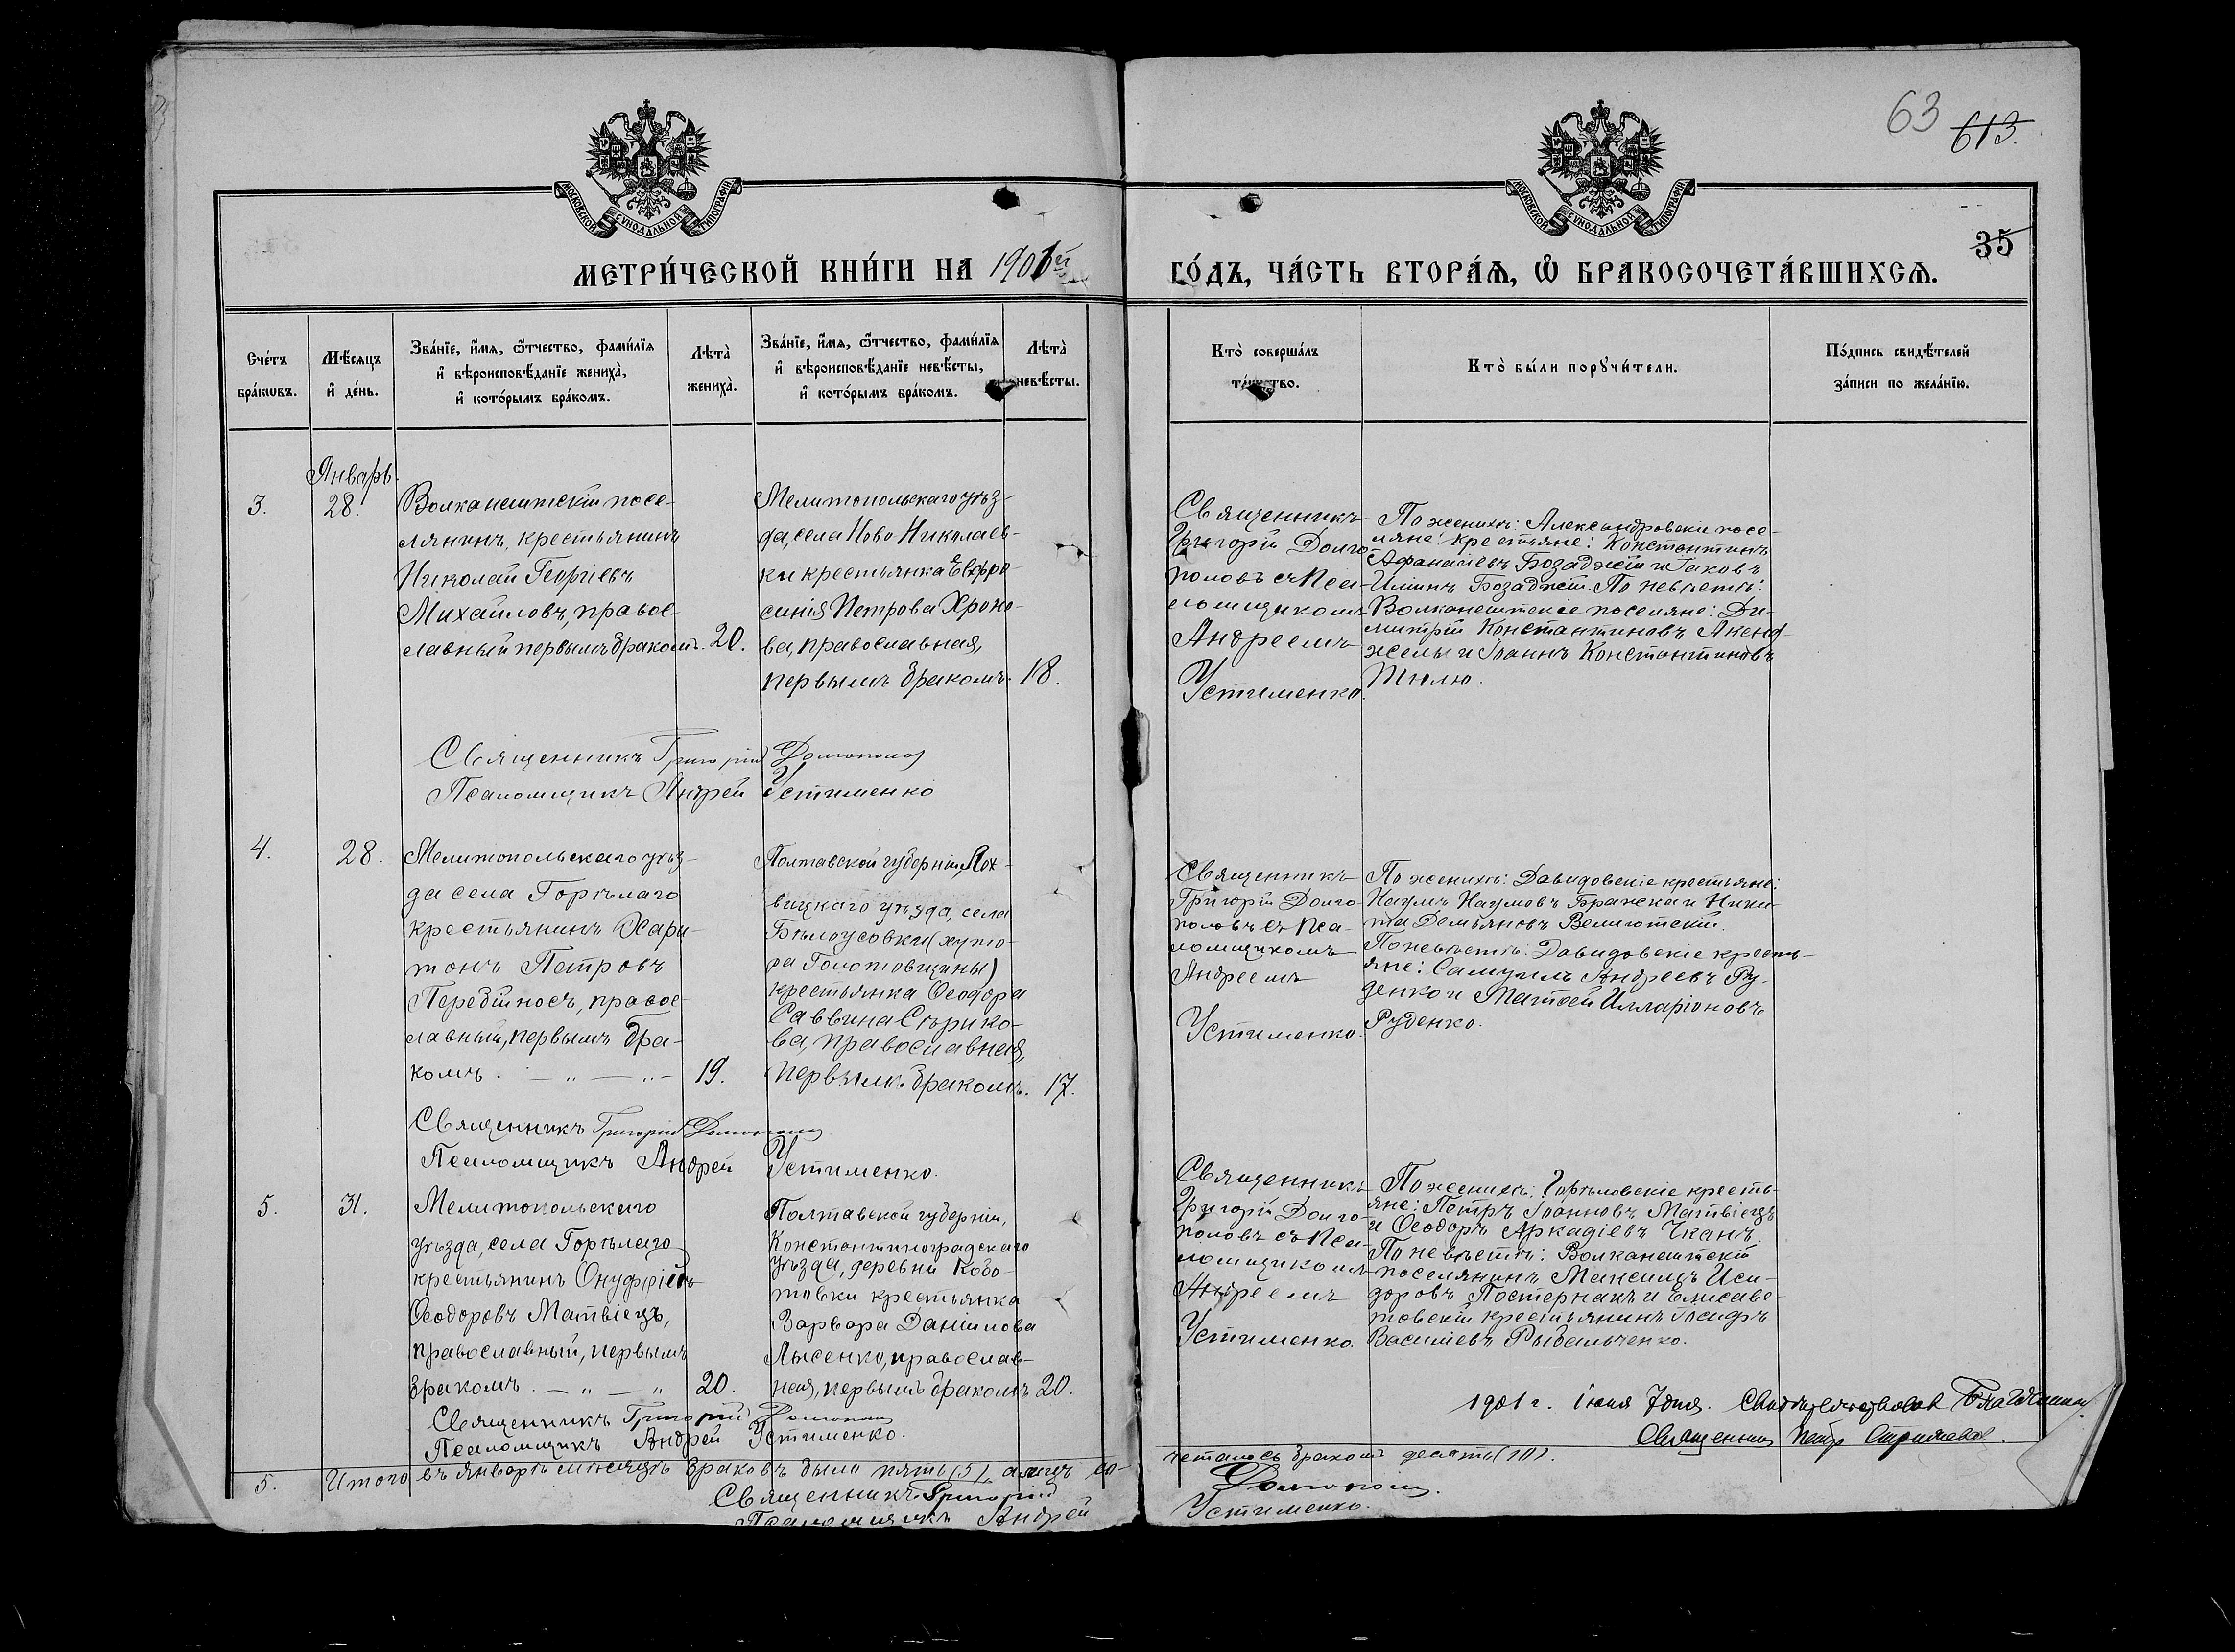 63
613.
МОСКОВСКОЙ СУНОДАЛЬНОЙ ТИПОГРАФІИ
МОСКОВСКОЙ СУНОДАЛЬНОЙ ТИПОГРАФІИ
35
МЕТРИ́ЧЕСКОЙ КНИ́ГИ НА 1901й
ГО́ДЪ, ЧА́СТЬ ВТОРА́Ѧ, Ѿ БРАКОСОЧЕТА́ВШИХСѦ.
Сче́тъ
бра́кѡвъ.
Мѣ́сѧцъ
и҆ де́нь.
Зва́нїе, и҆́мѧ, ѻ҆́тчество, фамѝлїѧ
и҆ вѣроисповѣ́данїе жениха̀,
и҆ кото́рымъ бра́комъ.
Лѣта̀
жениха̀.
Зва́нїе, и҆́мѧ, ѻ҆́тчество, фамѝлїѧ
и҆ вѣроисповѣ́данїе невѣ́сты,
и҆ кото́рымъ бра́комъ.
Лѣта̀
невѣ́сты.
Кто̀ соверша́лъ
та́инство.
Кто̀ бы́ли порꙋчи́тели.
По́дпись свидѣ́телей
за́писи по жела́нїю.
Январь.
3.
28.
Волканештскій посе-
лянинъ, крестьянинъ
Николай Георгіевъ
Михайловъ, правос-
лавный первымъ бракомъ.
20.
Мелитопольскаго уѣз-
да, села Ново Николаев-
ки крестьянка Евфро-
синія Петрова Хроно-
ва, православная,
первымъ бракомъ.
18.
Священникъ
Григорій Долго-
половъ съ Пса-
ломщикомъ
Андреемъ
Устименко.
По женихѣ: Александровскіе посе-
ляне: крестьяне: Константинъ
Афанасіевъ Бозаджій и Іаковъ
Иліинъ Бозаджій. По невѣстѣ:
Волканештскіе поселяне: Ди-
митрій Константиновъ Аксенд-
желы и Іоаннъ Константиновъ
Тнлю.
Священникъ Григорій Долгополов
Псаломщикъ Андрей Устименко
4.
28.
Мелитопольскаго уѣз-
да села Горѣлаго
крестьянинъ Хари-
тонъ Петровъ
Перебійносъ, правос-
лавный, первымъ бра-
комъ. — „ — „ —
19.
Полтавской губерніи, Лох-
вицкаго уѣзда, села
Бѣлоусовки (хуто-
ра Голотовщины)
крестьянка Ѳеодора
Саввина Сѣрико-
ва, православная,
первымъ бракомъ.
17.
Священникъ
Григорій Долго-
половъ съ Пса-
ломщикомъ
Андреемъ
Устименко.
По женихѣ: Давидовскіе крестьяне:
Наумъ Наумовъ Бражска и Ники-
та Демьяновъ Велиготскій.
По невѣстѣ: Давидовскіе кресть-
яне: Самуилъ Андреевъ Ру-
денко и Матѳей Илларіоновъ
Руденко.
Священникъ Григорій Долгополов
Псаломщикъ Андрей Устименко.
5.
31.
Мелитопольскаго
уѣзда, села Горѣлаго
крестьянинъ Онуфрій
Ѳеодоровъ Матвіецъ,
православный, первымъ
бракомъ. — „ — „
20.
Полтавской губерніи,
Константиноградскаго
уѣзда, деревни Кобо-
товки крестьянка
Варвара Даніилова
Лысенко, православ-
ная, первымъ бракомъ
20.
Священникъ
Григорій Долго-
половъ съ Пса-
ломщикомъ
Андреемъ
Устименко.
По женихѣ: Горѣловскіе кресть-
яне: Петръ Іоанновъ Матвіецъ
и Ѳеодоръ Аркадіевъ Чканъ.
По невѣстѣ: Волканештскій
поселянинъ Максимъ Иси-
доровъ Постернакъ и Елисаве-
товскій крестьянинъ Іосифъ
Василіевъ Рыбальченко.
Священникъ Григорій Долгополов
Псаломщикъ Андрей Устименко.
1901 г. іюня 7 дня. Свидѣтельствовалъ Благочинный
Священникъ Петръ
5. Итого въ январѣ мѣсяцѣ браковъ было пять (5), а лицъ со-
четалось бракомъ десять (10).
Священникъ Григорій Долгополов.
Псаломщикъ Андрей Устименко.